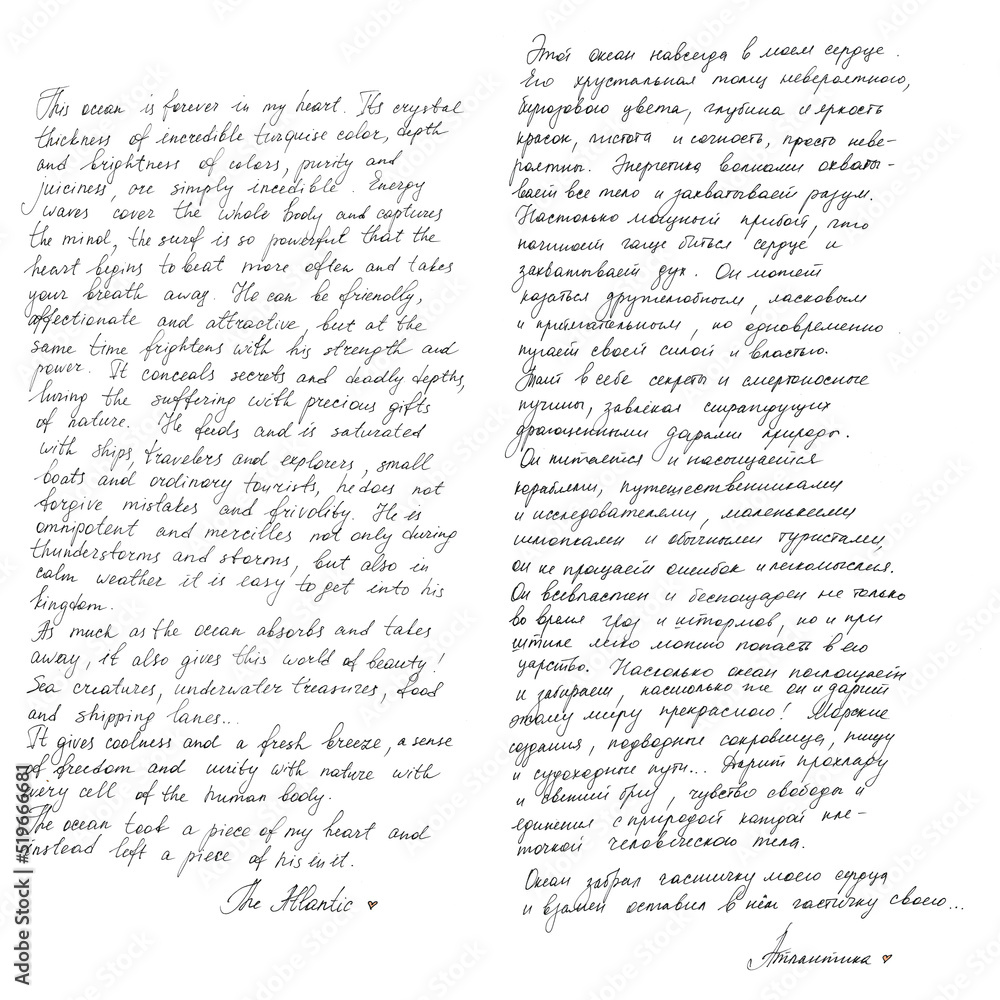 This ocean is forever in my heart. Its crystal
thickness of incredible turquise color, depth
and brightness of colors, purity and
juiciness, are simply incedible. Energy
waves cover the whole body and captures
the mind, the surf is so powerful that the
heart begins to beat more often and takes
your breath away. He can be friendly,
affectionate and attractive, but at the
same time frightens with his strength and
power. It conceals secrets and deadly depths,
luring the suffering with precious gifts
of nature. He feeds and is saturated
with ships, travelers and explorers, small
boats and ordinary tourists, he does not
forgive mistakes and frivolity. He is
omnipotent and mercilles not only during
thunderstorms and storms, but also in
calm weather it is easy to get into his
kingdom.
As much as the ocean absorbs and takes
away, it also gives this world of beauty!
Sea creatures, underwater treasures, food
and shipping lanes...
It gives coolness and a fresh breeze, a sense
of freedom and unity with nature with
every cell of the human body.
The ocean took a piece of my heart and
instead left a piece of his in it.
The Atlantic
Этот океан навсегда в моем сердце.
Его хрустальная толщ невероятного,
бирюзового цвета, глубина и яркость
красок, чистота и сочность, просто неве-
роятны. Энергетика волнами охваты-
вает все тело и захватывает разум.
Настолько мощный прибой, что
начинает чаще биться сердце и
захватывает дух. Он может
казаться дружелюбным, ласковым
и притягательным, но одновременно
пугает своей силой и властью.
Таит в себе секреты и смертоносные
пучины, завлекая страждущих
драгоценными дарами природы.
Он питается и насыщается
кораблями, путешественниками
и исследователями, маленькими
шлюпками и обычными туристами,
он не прощает ошибок и легкомыслия.
Он всевластен и беспощаден не только
во время гроз и штормов, но и при
штиле легко можно попасть в его
царство. Насколько океан поглощает
и забирает, настолько же он и дарит
этому миру прекрасного! Морские
создания, подводные сокровища, пищу
и судоходные пути... Дарит прохладу
и свежий бриз, чувство свободы и
единения с природой каждой кле-
точкой человеческого тела.
Океан забрал частичку моего сердца
и взамен оставил в нём частичку своего...
Атлантика
Adobe Stock | #519666681